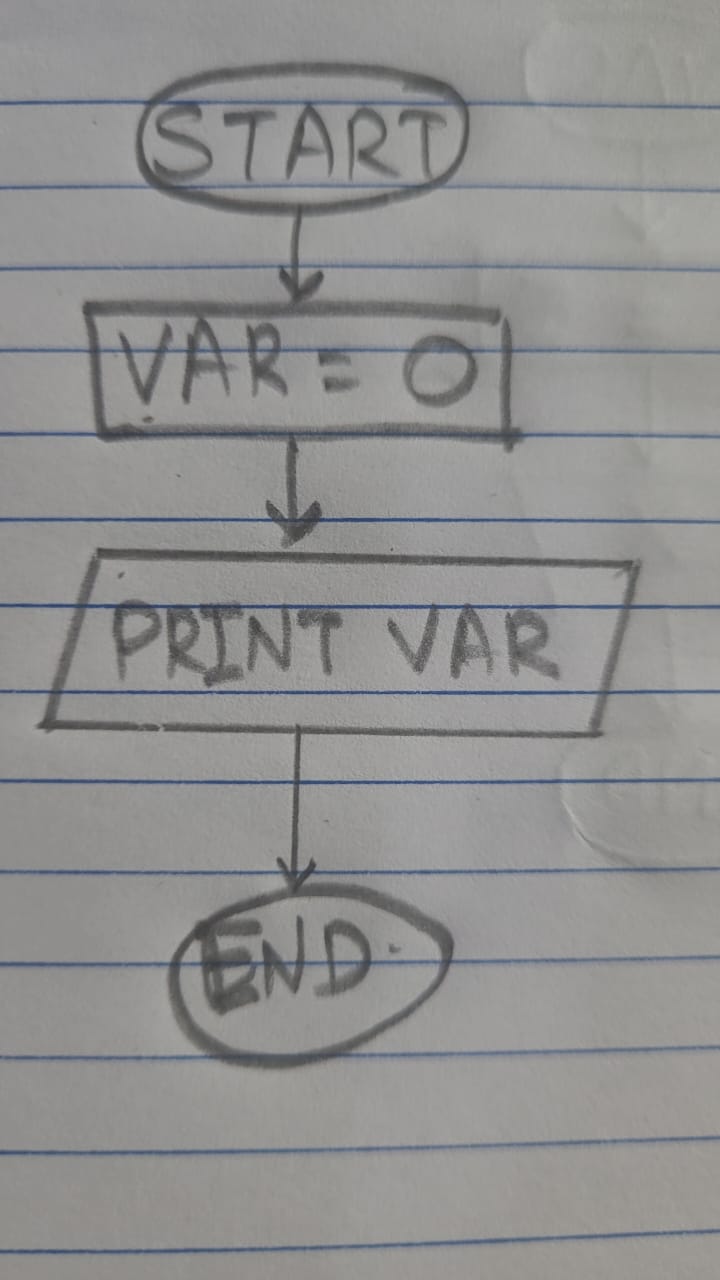 START
VAR = 0
PRINT VAR
END